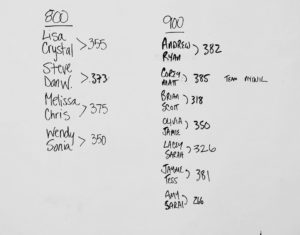 800
Lisa
Crystal > 355
Steve
Dan W. > 373
Melissa
Chris > 375
Wendy
Sonia > 350
900
Andrew
Ryan > 382
Corey
Matt > 385 Team
Brian
Scott > 318
Olivia
Jamie > 350
Lacey
Sarah > 326
Jayme
Tess > 381
Amy
Sarai > 266